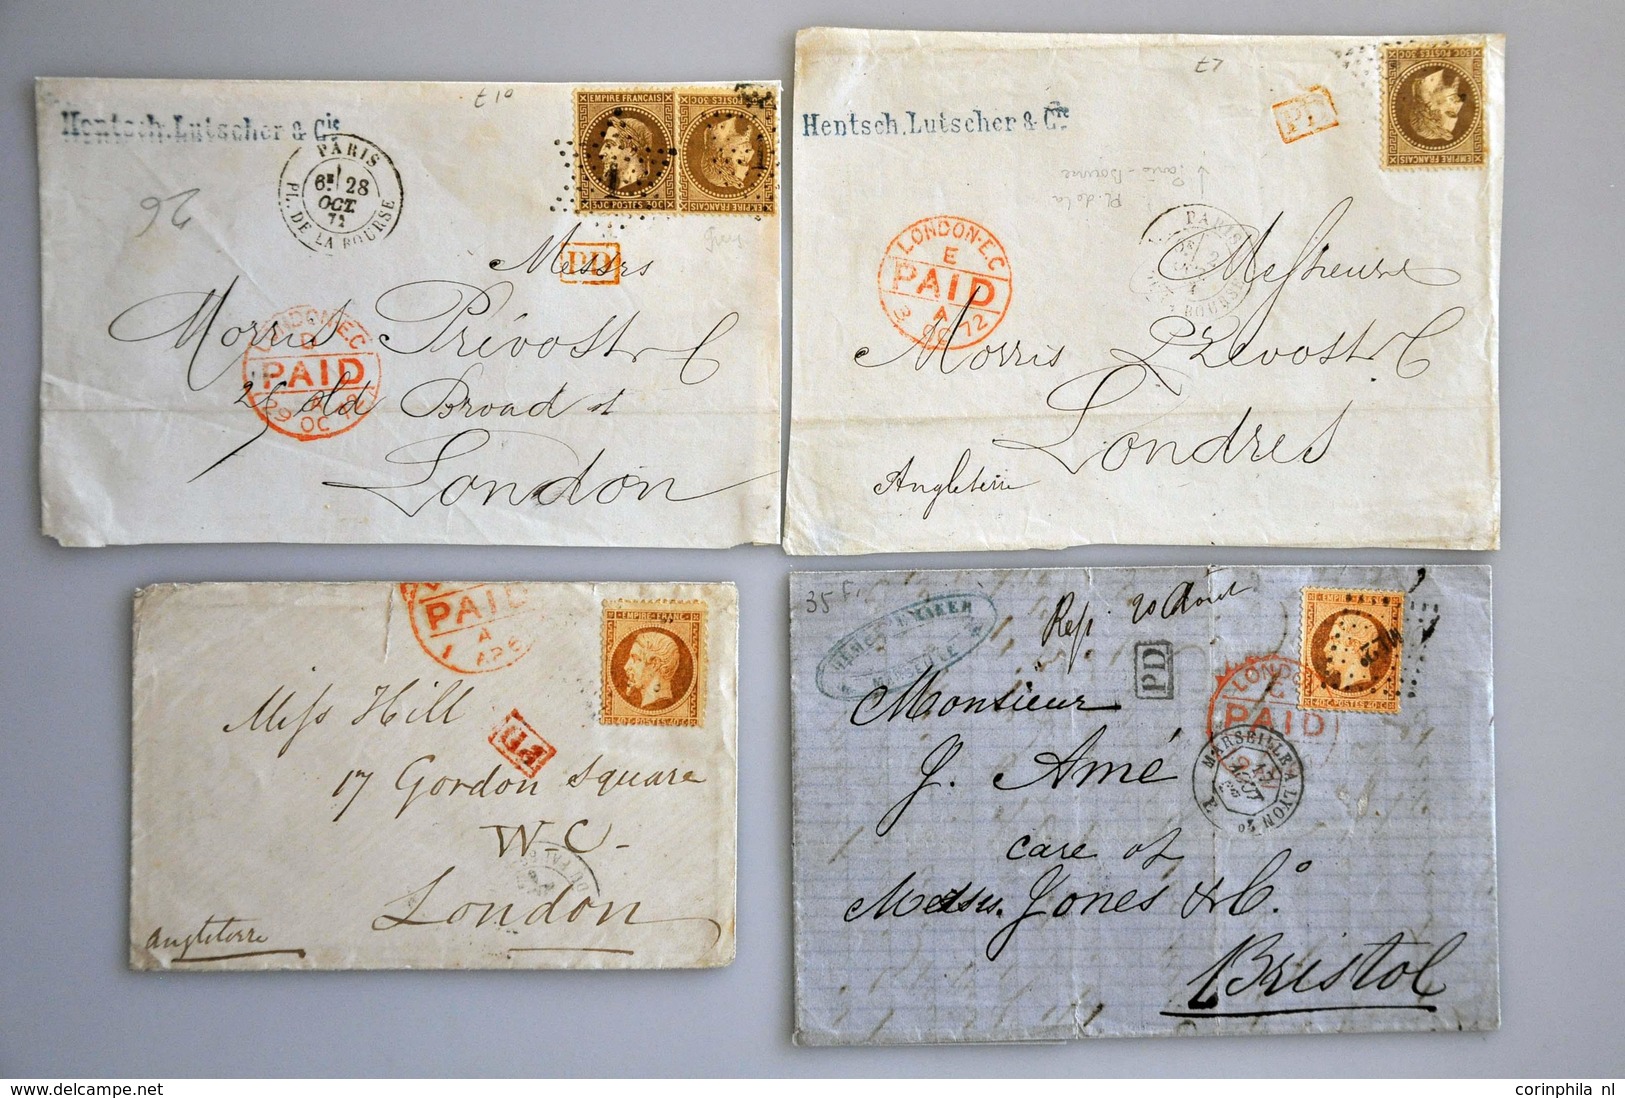 £10
Hentsch.Lutscher & Cie
PARIS
6E 28
OCT.
72
PL. DE LA BOURSE
EMPIRE FRANÇAIS
30C POSTES 30C
EMPIRE FRANÇAIS
1
26
PD
Messrs
Morris Prévost & C
25 Old Broad st
London
LONDON-EC
D
PAID
29 OC
£7
Hentsch.Lutscher & Cie
PD
POSTES 30C
EMPIRE FRANÇAIS
Pl. de la
PARIS
BOURSE
LONDON-EC
E
PAID
A
3 OC 72
Messieurs
Morris Prévost & C
Londres
Angleterre
PAID
A
1 AP 6
EMPIRE FRANC
40C POSTES 40C
Miss Hill
17 Gordon Square
W.C.
London
Angleterre
35 F.
MARSEILLE
Rep. 20 Aout
PD
EMPIRE FRANC
40C POSTES 40C
LONDON
C
PAID
MARSEILLE A LYON
AOUT
Monsieur
J. Amé
care of
Messrs. Jones & Co.
Bristol
www.delcampe.net
corinphila nl